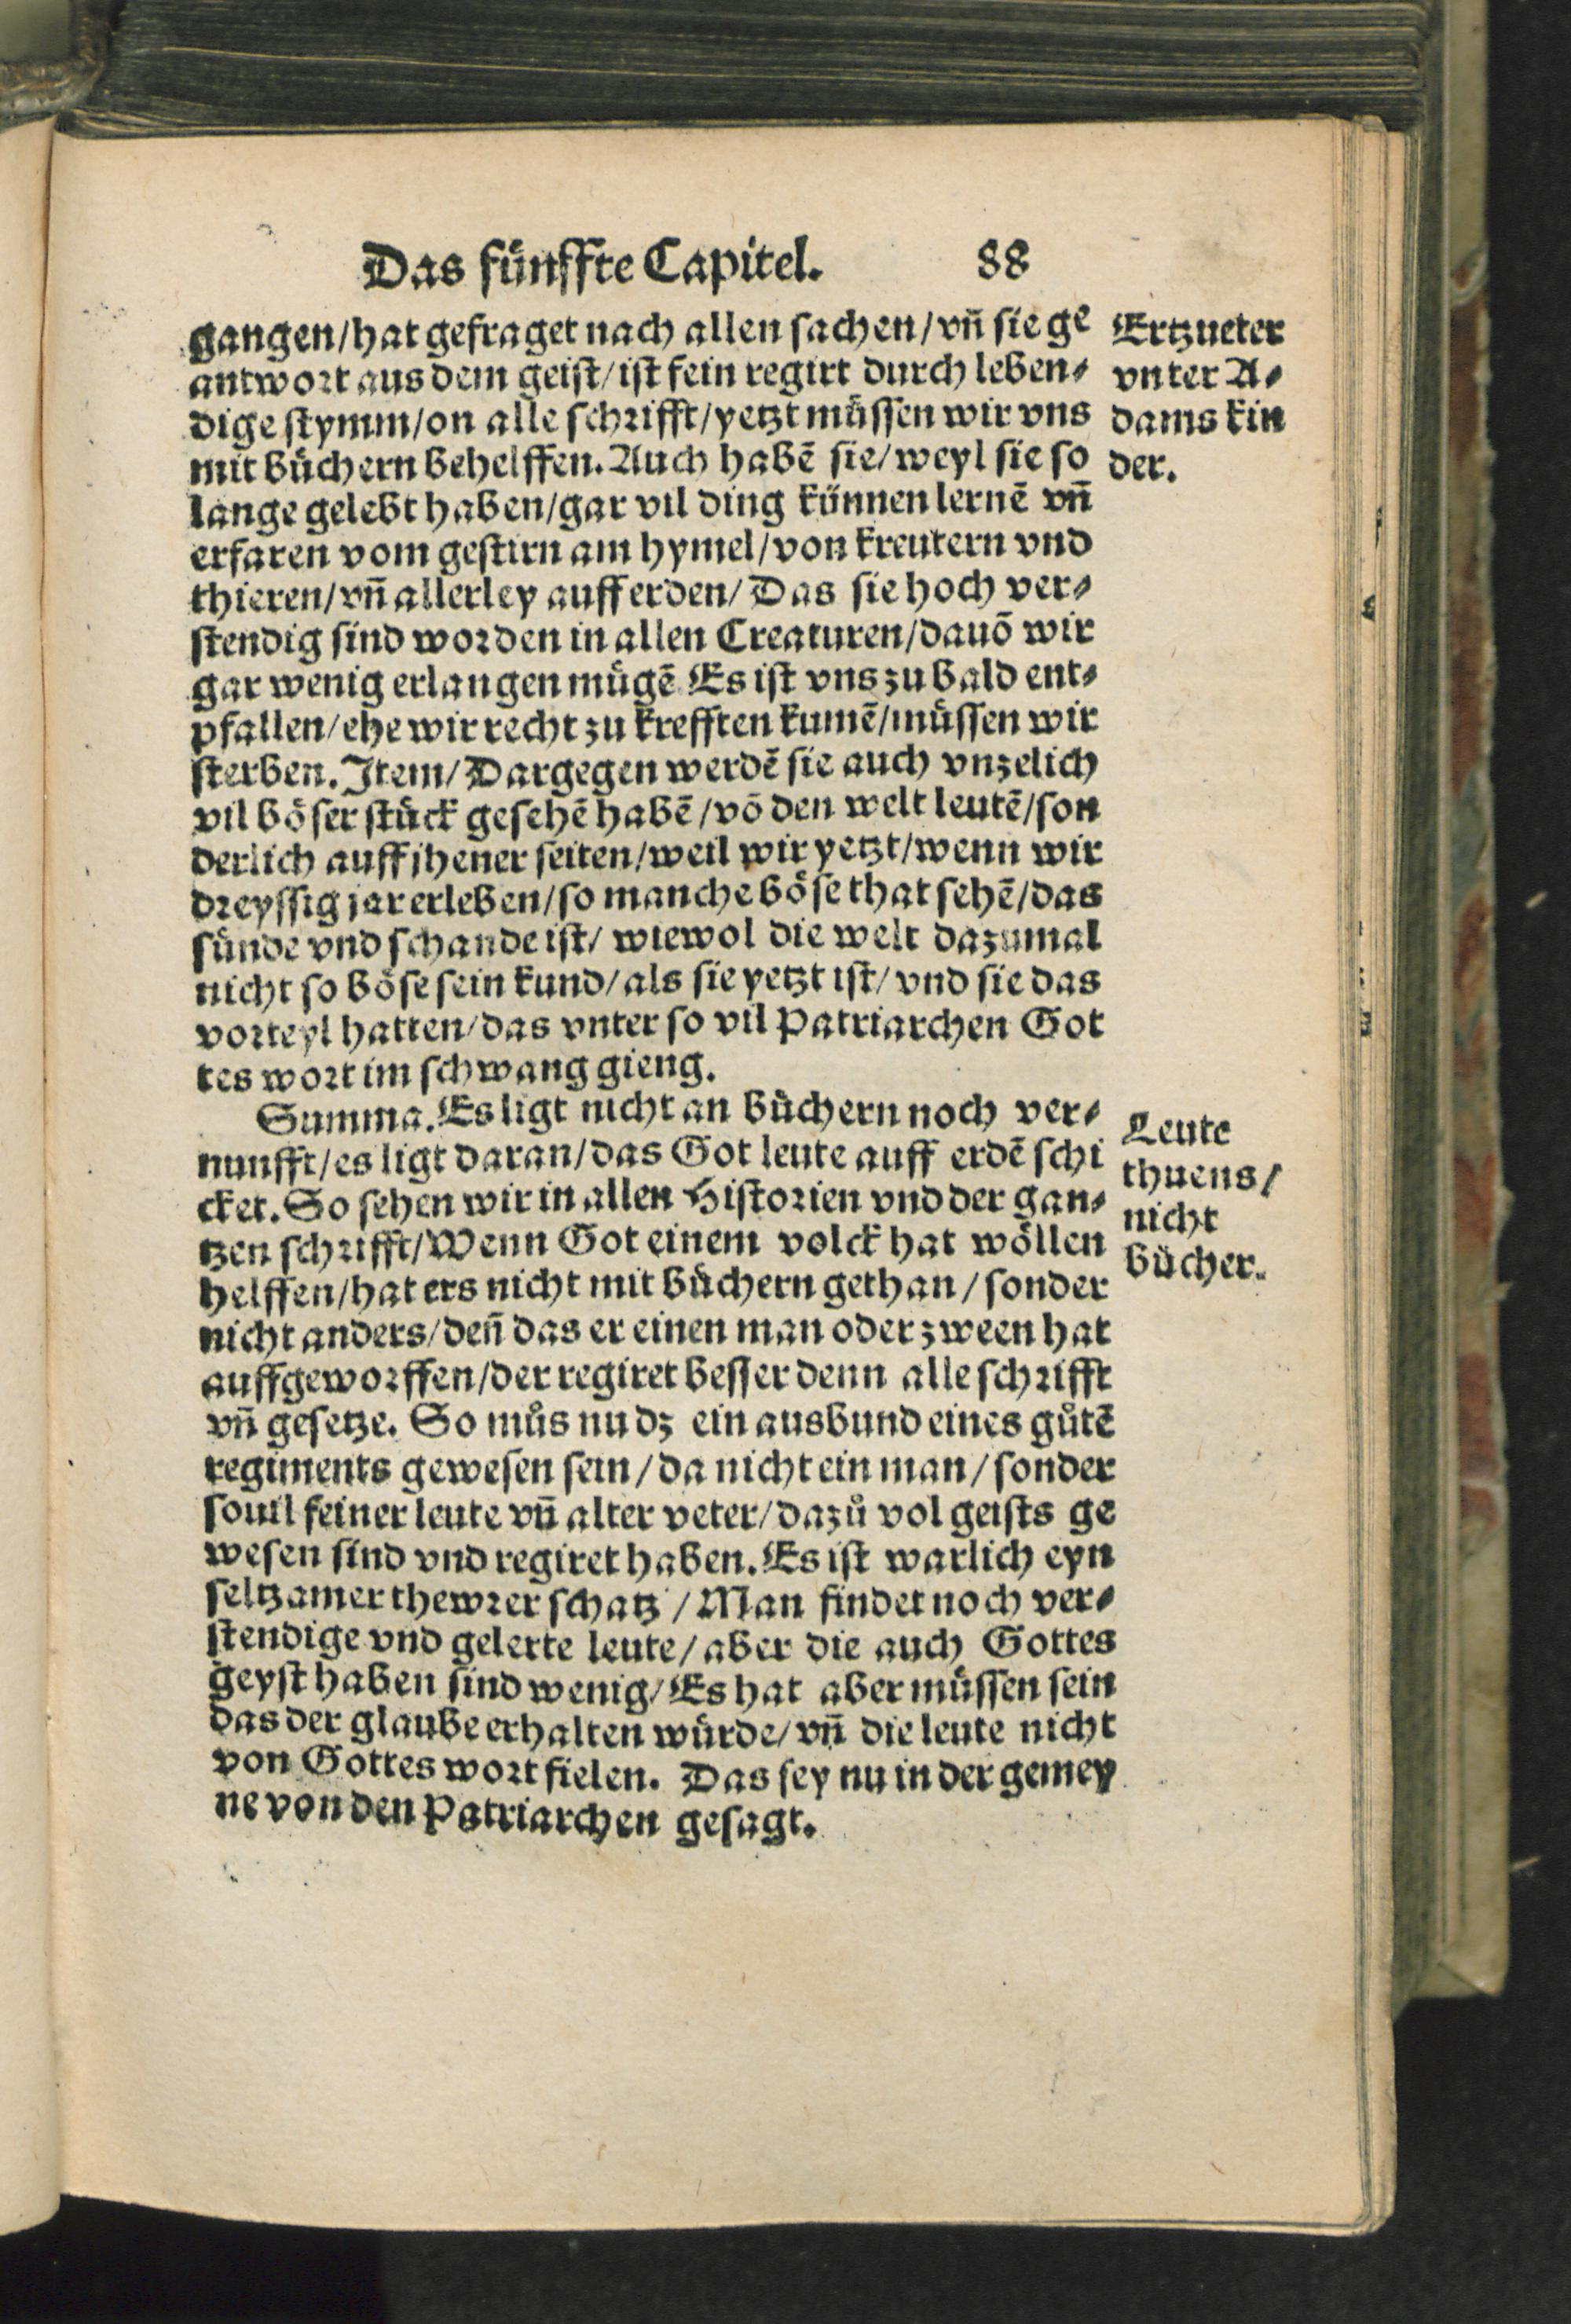 Das fünffte Capitel. 88
gangen/hat gefraget nach allen sachen/vñ sie ge
antwort aus dem geist/ist fein regirt durch leben⸗
dige stymm/on alle schrifft/yetzt müssen wir vns
mit büchern behelffen. Auch habẽ sie/weyl sie so
lange gelebt haben/gar vil ding künnen lernẽ vñ
erfaren vom gestirn am hymel/von kreutern vnd
thieren/vñ allerley auff erden/Das sie hoch ver⸗
stendig sind worden in allen Creaturen/dauõ wir
gar wenig erlangen mügẽ Es ist vns zu bald ent⸗
pfallen/ehe wir recht zu krefften kumẽ/müssen wir
sterben. Item/Dargegen werdẽ sie auch vnzelich
vil böser stück gesehẽ habẽ/võ den welt leutẽ/son
derlich auff jhener seiten/weil wir yetzt/wenn wir
dreyssig jar erleben/so manche böse that sehẽ/das
sünde vnd schande ist/ wiewol die welt dazumal
nicht so böse sein kund/als sie yetzt ist/vnd sie das
vorteyl hatten/das vnter so vil Patriarchen Got
tes wort im schwang gieng.
Summa. Es ligt nicht an büchern noch ver⸗
nunfft/es ligt daran/das Got leute auff erdẽ schi
cket. So sehen wir in allen Historien vnd der gan⸗
tzen schrifft/Wenn Got einem volck hat wöllen
helffen/hat ers nicht mit büchern gethan/sonder
nicht anders/deñ das er einen man oder zween hat
auffgeworffen/der regiret besser denn alle schrifft
vñ gesetze. So můs nu dz ein ausbund eines gůtẽ
regiments gewesen sein/da nicht ein man/sonder
souil feiner leute vñ alter veter/dazů vol geists ge
wesen sind vnd regiret haben. Es ist warlich eyn
seltzamer thewrer schatz/Man findet noch ver⸗
stendige vnd gelerte leute/aber die auch Gottes
geyst haben sind wenig/Es hat aber müssen sein
das der glaube erhalten würde/vñ die leute nicht
von Gottes wort fielen. Das sey nu in der gemey
ne von den Patriarchen gesagt.
Ertzueter
vnter A⸗
dams kin
der.
Leute
thuens/
nicht
bücher.